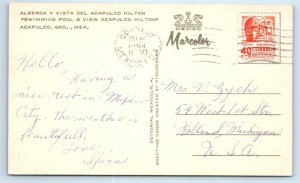 ALBERCA Y VISTA DEL ACAPULCO HILTON
"SWIMMING POOL & VIEW ACAPULCO HILTON"
ACAPULCO, GRO., MEX.
MEXICO
Marcolor
CORREOS
1964
40
CORREOS
Hello
Having a
nice rest in Mexico
City. The weather is
beautiful.
Love,
Sylvia
Mrs V. Zych
54 West 1st St.
Holland, Michigan
U.S.A.
EDITORIAL MEXICO, S.A.